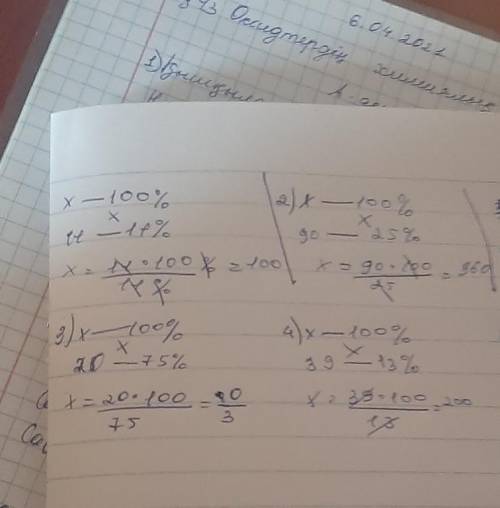 6.04.2021
§43 Оксидтердің химиялық
1) Қышқыл
x — 100%
x
11 — 11%
x = 11 • 100 % / 11 % = 100
2) x — 100%
x
90 — 25%
x = 90 • 100 / 25 = 360
3) x — 100%
x
20 — 75%
x = 20 • 100 / 75 = 80 / 3
4) x — 100%
x
39 — 13%
x = 39 • 100 / 13 = 200